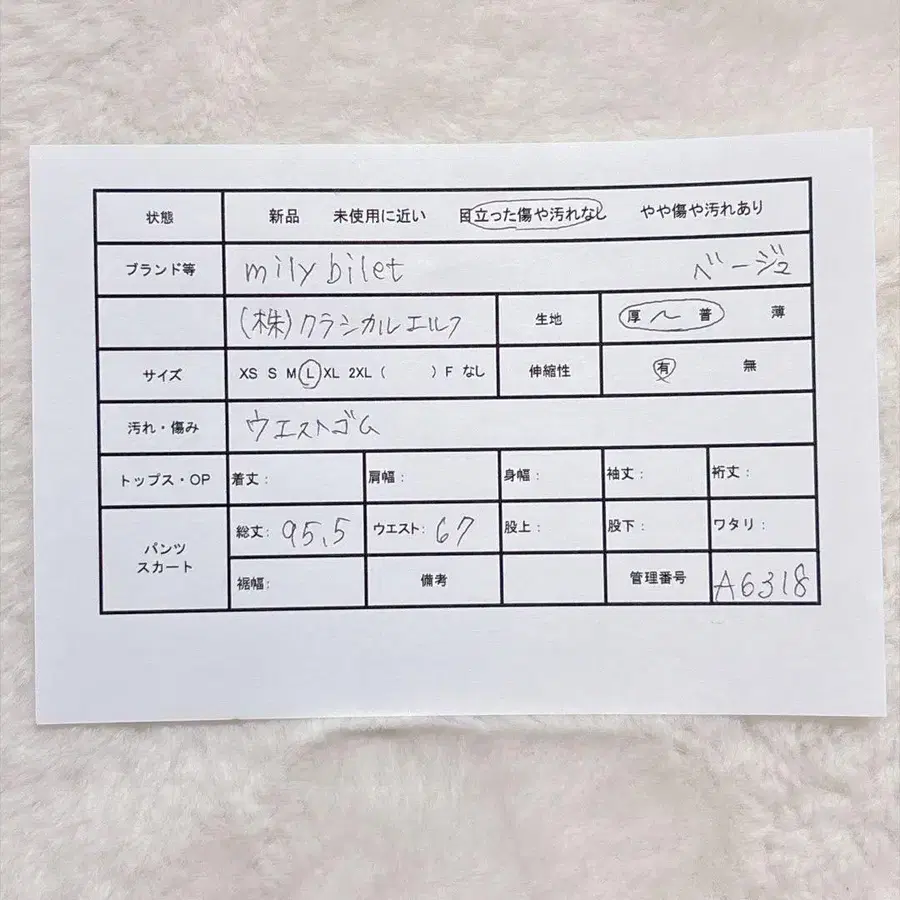 状態 新品 未使用に近い 目立った傷や汚れなし やや傷や汚れあり
ブランド等 mily bilet ベージュ
(株)クラシカルエルフ 生地 厚 〜 普 薄
サイズ XS S M L XL 2XL ( ) F なし 伸縮性 有 無
汚れ・傷み ウエストゴム
トップス・OP 着丈: 肩幅: 身幅: 袖丈: 裄丈:
パンツ スカート 総丈: 95.5 ウエスト: 67 股上: 股下: ワタリ:
裾幅: 備考 管理番号 A6318